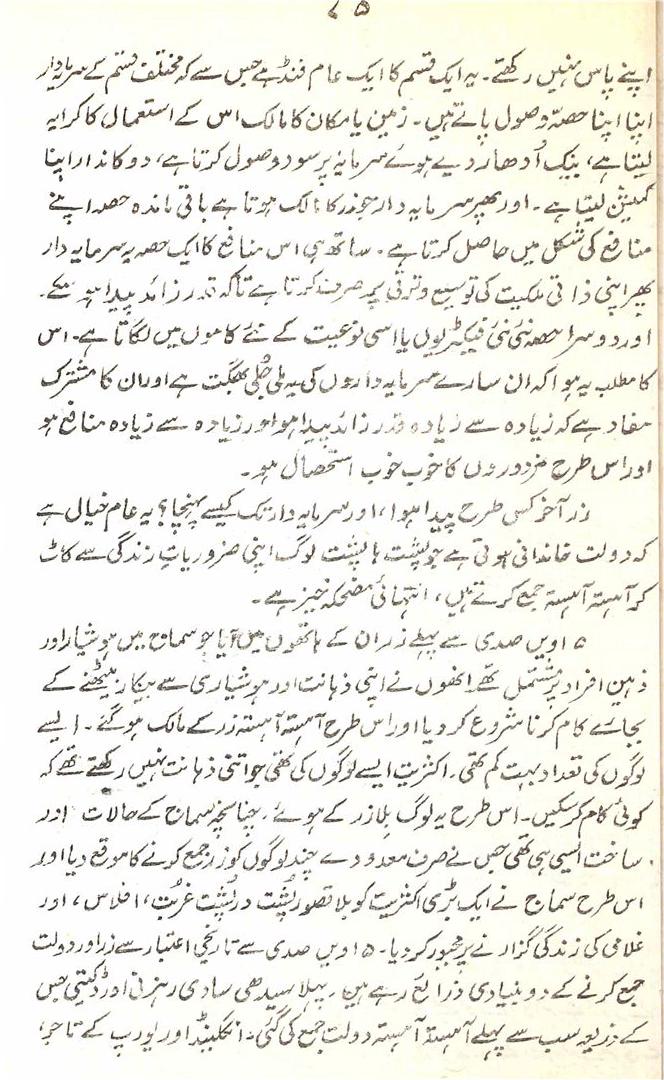 ۷۵
اپنے پاس نہیں رکھتے۔ یہ ایک قسم کا ایک عام فنڈ ہے جس سے کہ مختلف قسم کے سرمایہ دار
اپنا اپنا حصہ وصول پاتے ہیں۔ زمین یا مکان کا مالک اس کے استعمال کا کرایہ
لیتا ہے، بینک اُدھار دیے ہوئے سرمایہ پر سود وصول کرتا ہے، دوکاندار اپنا
کمیشن لیتا ہے۔ اور پھر سرمایہ دار جو زر کا مالک ہوتا ہے باقی ماندہ حصہ اپنے
منافع کی شکل میں حاصل کرتا ہے۔ ساتھ ہی اس منافع کا ایک حصہ یہ سرمایہ دار
پھر اپنی ذاتی ملکیت کی توسیع و ترقی پر صرف کرتا ہے تاکہ قدر زائد پیدا ہو سکے۔
اور دوسرا حصہ نئی نئی فیکٹریوں یا اسی نوعیت کے نئے کاموں میں لگاتا ہے۔ اس
کا مطلب یہ ہوا کہ ان سارے سرمایہ داروں کی یہ ملی جُلی بھگت ہے اور ان کا مشترک
مفاد ہے کہ زیادہ سے زیادہ قدر زائد پیدا ہو اور زیادہ سے زیادہ منافع ہو
اور اس طرح مزدوروں کا خوب خوب استحصال ہو۔
زر آخر کس طرح پیدا ہوا، اور سرمایہ دار تک کیسے پہنچا؟ یہ عام خیال ہے
کہ دولت خاندانی ہوتی ہے جو پشت ہا پشت لوگ اپنی ضروریاتِ زندگی سے کاٹ
کر آہستہ آہستہ جمع کرتے ہیں، انتہائی مضحکہ خیز ہے۔
۱۵ ویں صدی سے پہلے زر ان کے ہاتھوں میں آیا جو سماج میں ہوشیار اور
ذہین افراد پر مشتمل تھے انھوں نے اپنی ذہانت اور ہوشیاری سے بیکار بیٹھنے کے
بجائے کام کرنا شروع کر دیا اور اس طرح آہستہ آہستہ زر کے مالک ہو گئے۔ ایسے
لوگوں کی تعداد بہت کم تھی۔ اکثریت ایسے لوگوں کی تھی جو اتنی ذہانت نہیں رکھتے تھے کہ
کوئی کام کر سکیں۔ اس طرح یہ لوگ بِلا زر کے ہوئے۔ چنانچہ سماج کے حالات اور
ساخت ایسی ہی تھی جس نے صرف معدودے چند لوگوں کو زر جمع کرنے کا موقع دیا اور
اس طرح سماج نے ایک بڑی اکثریت کو بلا قصور پُشت در پُشت غربت، افلاس، اور
غلامی کی زندگی گزارنے پر مجبور کر دیا۔ ۱۵ ویں صدی سے تاریخی اعتبار سے زر اور دولت
جمع کرنے کے دو بنیادی ذرائع رہے ہیں۔ پہلا سیدھی سادی رہزنی اور ڈکیتی جس
کے ذریعہ سب سے پہلے آہستہ آہستہ دولت جمع کی گئی۔ انگلینڈ اور یورپ کے تاجر،